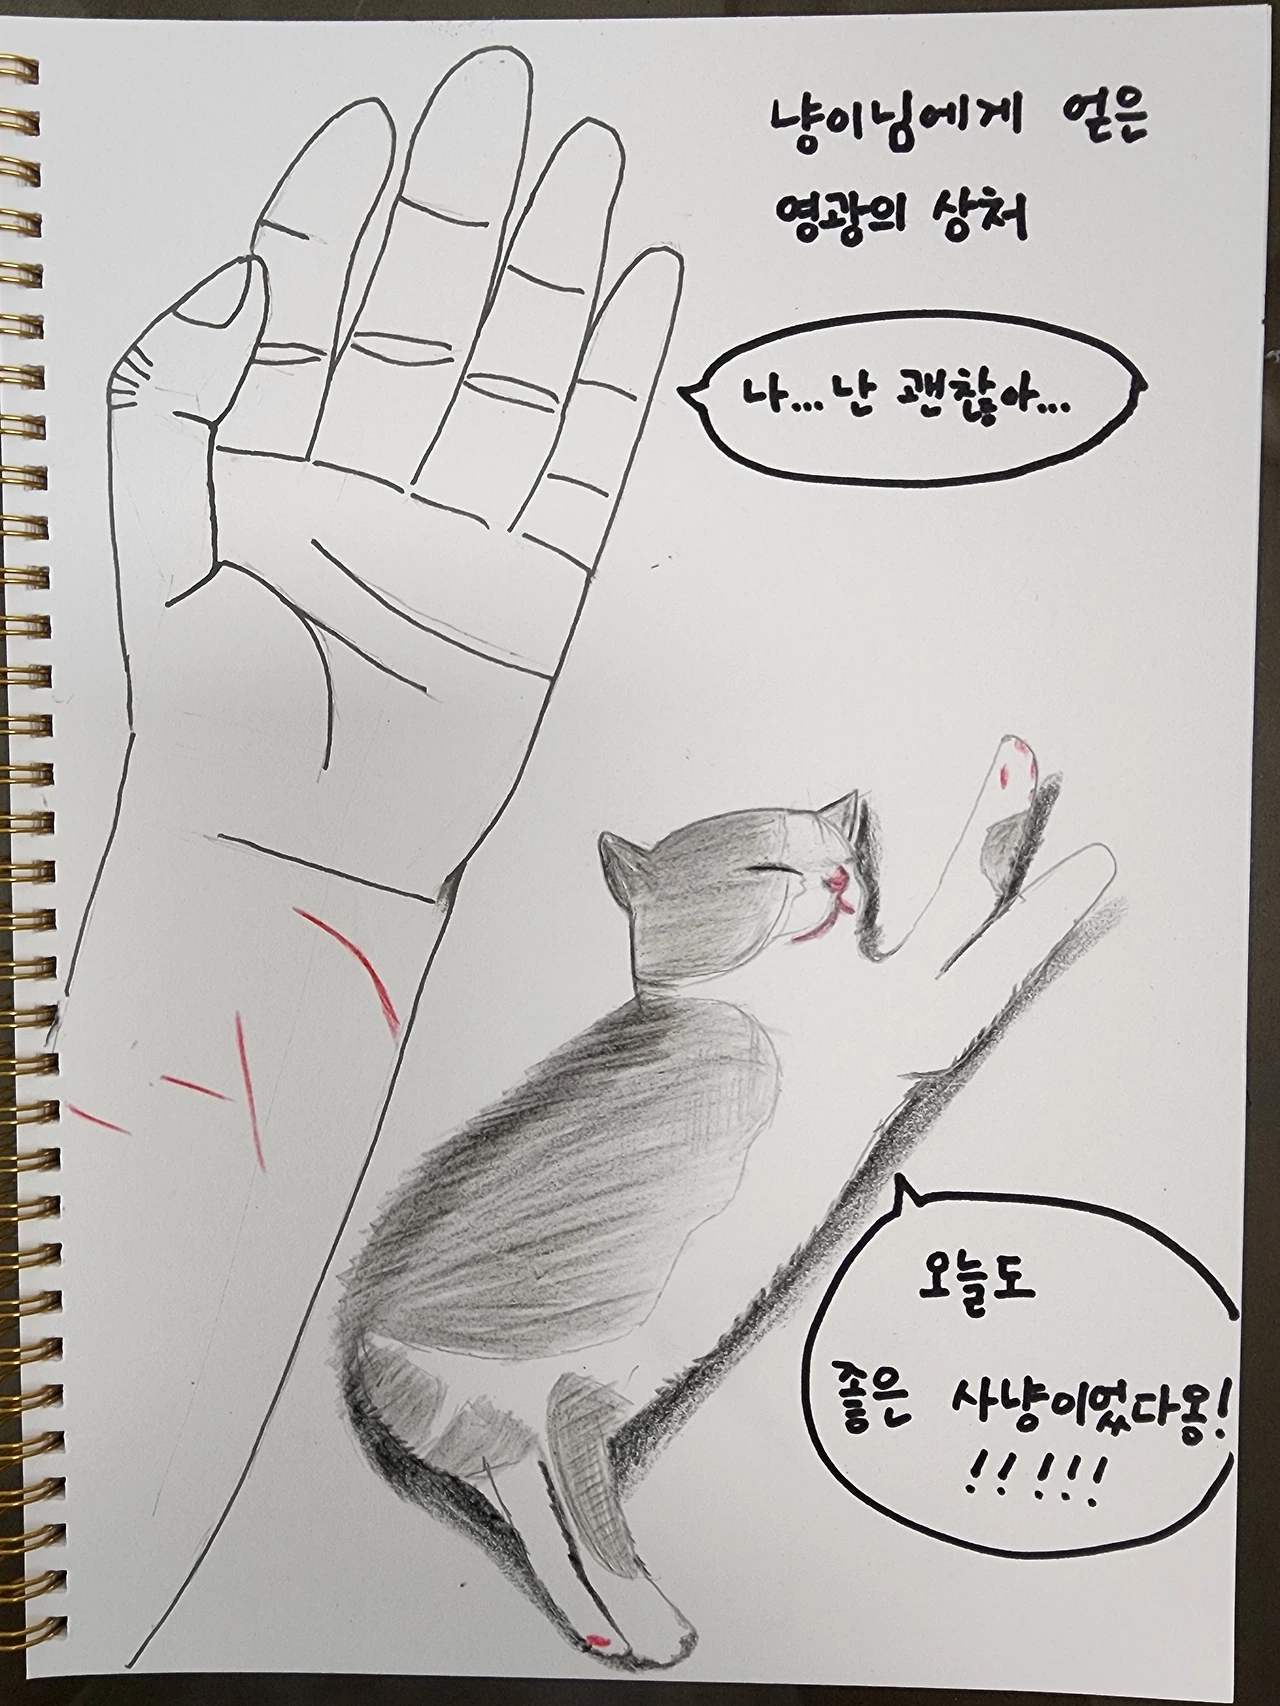 냥이님에게 얻은
영광의 상처
나... 난 괜찮아...
오늘도
좋은 사냥이었다옹!
!!!!!